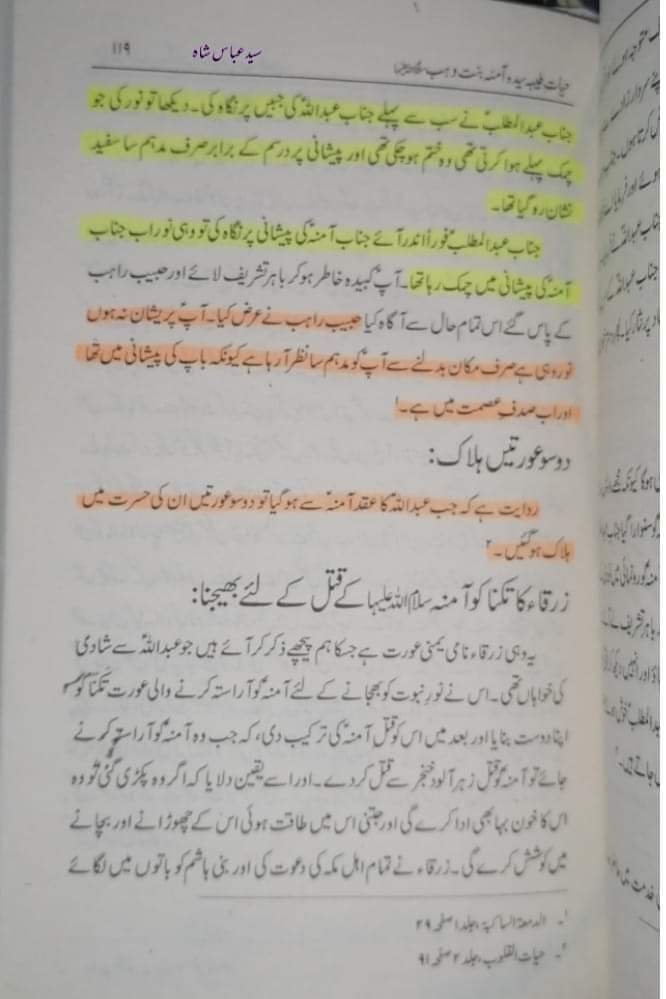 ۱۱۹
سید عباس شاہ
حیات طیبہ سیدہ آمنہ بنت وہب سلام اللہ علیہا
جناب عبدالمطلبؑ نے سب سے پہلے جناب عبداللہؑ کی جبیں پر نگاہ کی۔ دیکھا تو نور کی جو
چمک پہلے ہوا کرتی تھی وہ ختم ہوچکی تھی اور پیشانی پر درہم کے برابر صرف مدہم سا سفید
نشان رہ گیا تھا۔
جناب عبدالمطلبؑ فوراً اندر آئے جناب آمنہؑ کی پیشانی پر نگاہ کی تو وہی نور اب جناب
آمنہؑ کی پیشانی میں چمک رہا تھا۔ آپؑ کبیدہ خاطر ہوکر باہر تشریف لائے اور حبیب راہب
کے پاس گئے اس تمام حال سے آگاہ کیا حبیب راہب نے عرض کیا۔ آپؑ پریشان نہ ہوں
نور وہی ہے صرف مکان بدلنے سے آپؑ کو مدہم سا نظر آرہا ہے کیونکہ باپ کی پیشانی میں تھا
اور اب صدفِ عصمت میں ہے۔۱
دو سو عورتیں ہلاک:
روایت ہے کہ جب عبداللہؑ کا عقد آمنہؑ سے ہوگیا تو دو سو عورتیں ان کی حسرت میں
ہلاک ہوگئیں۔۲
زرقاء کا تکنا کو آمنہ سلام اللہ علیہا کے قتل کے لئے بھیجنا:
یہ وہی زرقاء نامی یمنی عورت ہے جسکا ہم پیچھے ذکر کر آئے ہیں جو عبداللہؑ سے شادی
کی خواہاں تھی۔ اس نے نورِ نبوت کو بجھانے کے لئے آمنہؑ کو آراستہ کرنے والی عورت تکنا کو
اپنا دوست بنایا اور بعد میں اس کو قتلِ آمنہؑ کی ترکیب دی، کہ جب وہ آمنہؑ کو آراستہ کرنے
جائے تو آمنہؑ کو قتل زہر آلود خنجر سے قتل کردے۔ اور اسے یقین دلایا کہ اگر وہ پکڑی گئی تو وہ
اس کا خون بہا بھی ادا کرے گی اور جتنی اس میں طاقت ہوئی اس کے چھوڑانے اور بچانے
میں کوشش کرے گی۔ زرقاء نے تمام اہل مکہ کی دعوت کی اور بنی ہاشم کو باتوں میں لگائے
۱۔ الدمعۃ الساکبہ، جلد ۱ صفحہ ۲۹
۲۔ حیات القلوب، جلد ۲ صفحہ ۹۱